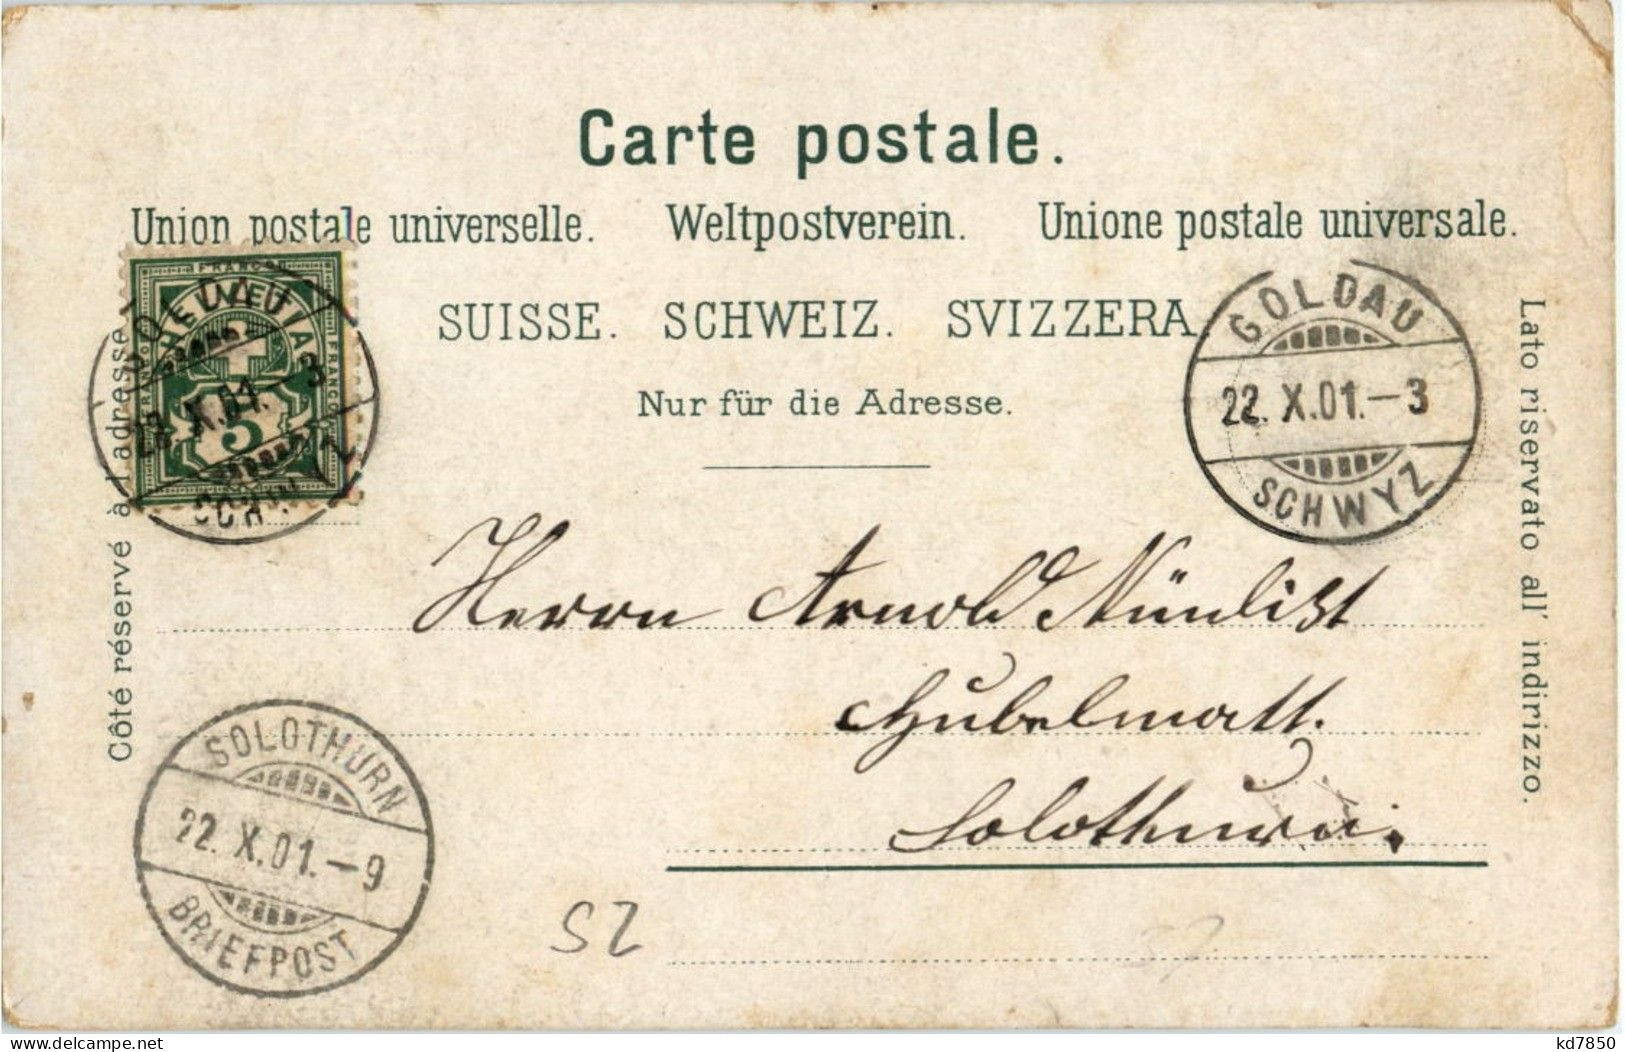 Carte postale.
Union postale universelle. Weltpostverein. Unione postale universale.
SUISSE. SCHWEIZ. SVIZZERA.
Nur für die Adresse.
Côté réservé à l'adresse.
Lato riservato all' indirizzo.
FRANCO
HELVETIA
FRANCO
FRANCO
5
GOLDAU
22. X.01.-3
SCHWYZ
GOLDAU
22. X.01.-3
SCHWYZ
Herrn Arnold Nünlist
Hubelmatt.
Solothurn.
SOLOTHURN
22. X.01.-9
BRIEFPOST
SZ
kd7850